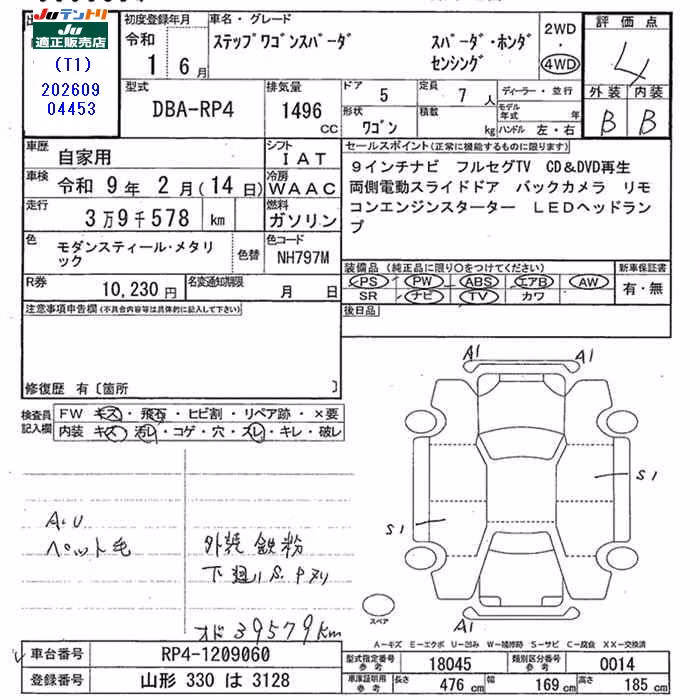 Juテントリ
適正販売店
(T1)
202609
04453
初度登録年月
令和
1 6月
車名・グレード
ステップワゴンスパーダ スパーダ・ホンダ
センシング
2WD
・
4WD
評価点
4
外装 内装
B B
型式
DBA-RP4
排気量
1496
CC
ドア 5
定員 7人
形状 ワゴン
積数 kg
ディーラー・並行
モデル年式 年
ハンドル 左・右
車歴
自家用
シフト
IAT
車検 令和 9年 2月(14日)
冷房
WAAC
走行
3万9千578 km
燃料
ガソリン
色 モダンスティール・メタリ
ック
色替
色コード
NH797M
R券
10,230円
名変通知期限
月 日
セールスポイント(正常に機能するものに限ります)
9インチナビ フルセグTV CD&DVD再生
両側電動スライドドア バックカメラ リモ
コンエンジンスターター LEDヘッドラン
プ
装備品(純正品に限り○をつけてください)
PS PW ABS エアB AW
SR ナビ TV カワ
新車保証書
有・無
後日品
注意事項申告欄(不具合内容等は具体的に記入して下さい)
修復歴 有〔箇所 〕
検査員
記入欄
FW キズ・飛石・ヒビ割・リペア跡・×要
内装 キズ・汚レ・コゲ・穴・スレ・キレ・破レ
A.U
ペット毛
外装 鉄粉
下廻り S.Pヌリ
オド 39579km
A1 A1
S1
S1
A1
スペア
A-キズ E-エクボ U-凹み W-補修跡 S-サビ C-腐食 XX-交換済
車台番号 RP4-1209060
登録番号 山形 330 は 3128
型式指定番号
参考
18045
類別区分番号
参考
0014
車庫証明用
参考
長さ 476cm 幅 169cm 高さ 185cm